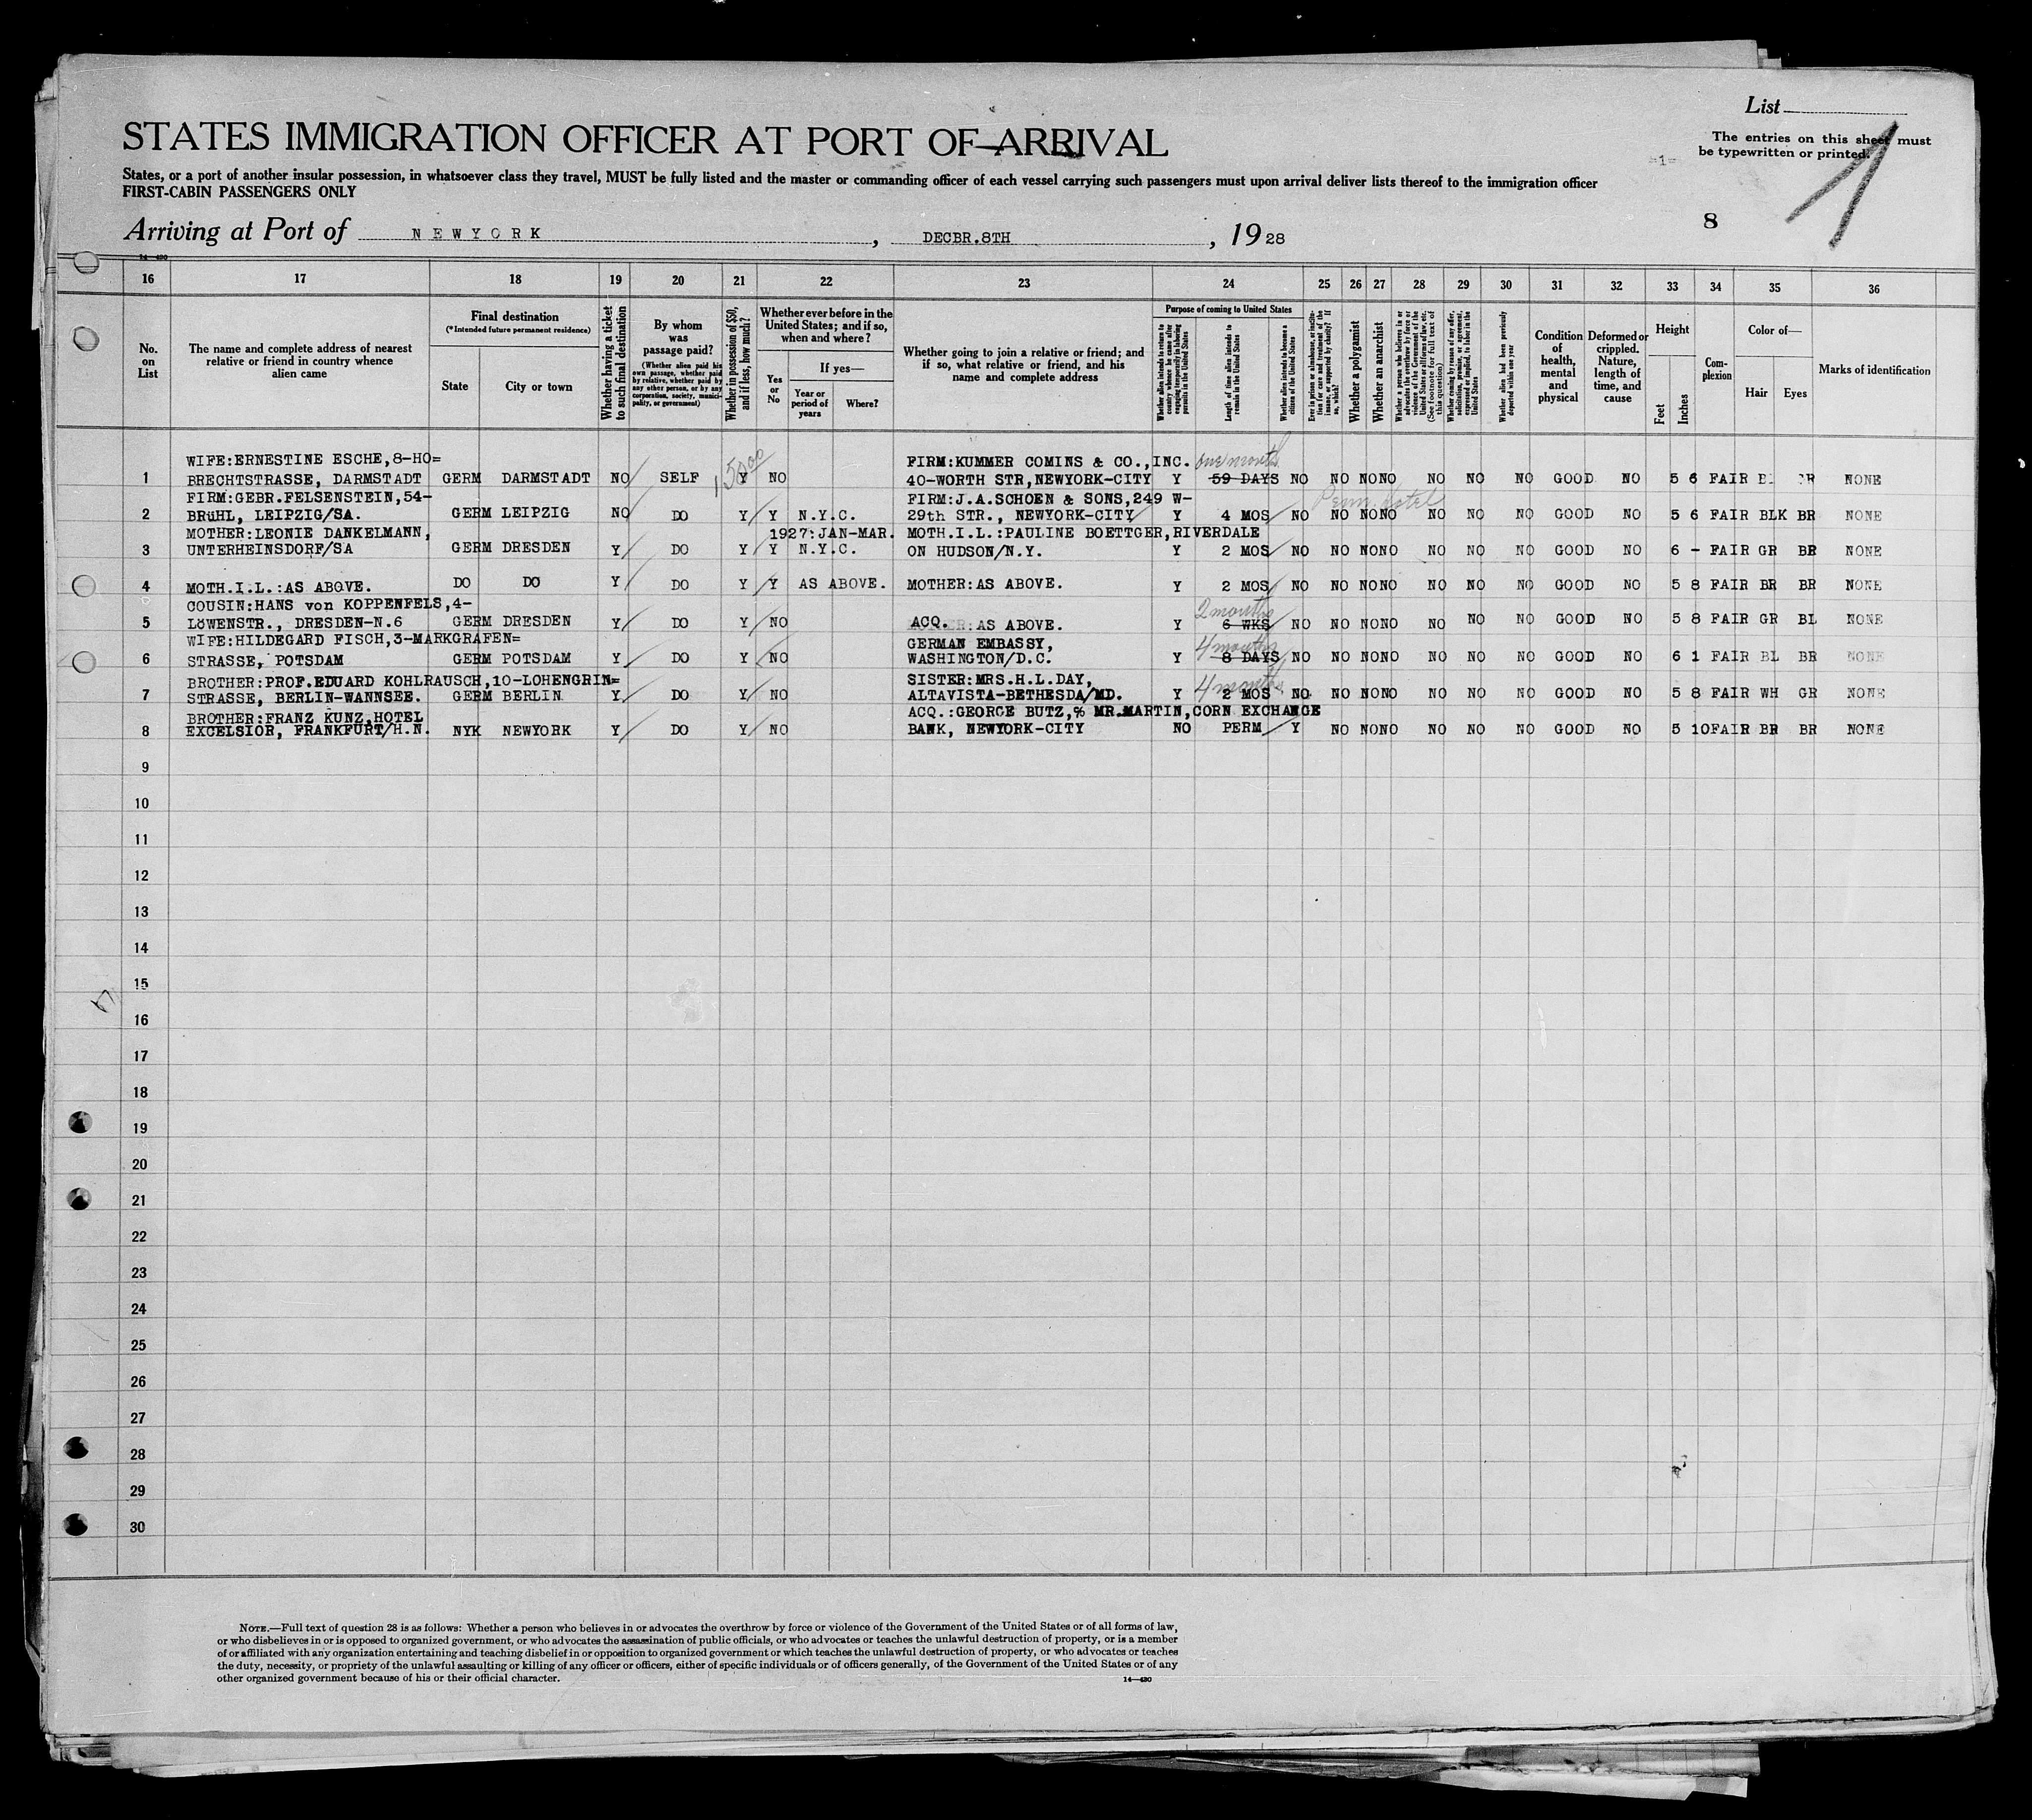 List
STATES IMMIGRATION OFFICER AT PORT OF ARRIVAL
The entries on this sheet must
be typewritten or printed.
-1-
1
States, or a port of another insular possession, in whatsoever class they travel, MUST be fully listed and the master or commanding officer of each vessel carrying such passengers must upon arrival deliver lists thereof to the immigration officer
FIRST-CABIN PASSENGERS ONLY
8
Arriving at Port of NEWYORK, DECBR.8TH, 1928
14—430
16 17 18 19 20 21 22 23 24 25 26 27 28 29 30 31 32 33 34 35 36
No. on List
The name and complete address of nearest relative or friend in country whence alien came
Final destination
(*Intended future permanent residence)
State
City or town
Whether having a ticket to such final destination
By whom was passage paid?
(Whether alien paid his own passage, whether paid by relative, whether paid by any other person, or by any corporation, society, municipality, or government)
Whether in possession of $50, and if less, how much?
Whether ever before in the United States; and if so, when and where?
Yes or No
If yes—
Year or period of years
Where?
Whether going to join a relative or friend; and if so, what relative or friend, and his name and complete address
Purpose of coming to United States
Whether alien intends to return to country whence he came after engaging temporarily in laboring pursuits in the United States
Length of time alien intends to remain in the United States
Whether alien intends to become a citizen of the United States
Ever in prison or almshouse, or institution for care and treatment of the insane, or supported by charity? If so, which?
Whether a polygamist
Whether an anarchist
Whether a person who believes in or advocates the overthrow by force or violence of the Government of the United States or all forms of law, etc. (See footnote for full text of this question)
Whether coming by reason of any offer, solicitation, promise, or agreement, expressed or implied, to labor in the United States
Whether alien had been previously deported within one year
Condition of health, mental and physical
Deformed or crippled. Nature, length of time, and cause
Height
Feet
Inches
Complexion
Color of—
Hair
Eyes
Marks of identification
WIFE:ERNESTINE ESCHE,8-HO= 150 00 FIRM:KUMMER COMINS & CO.,INC. one month
1 BRECHTSTRASSE, DARMSTADT GERM DARMSTADT NO SELF Y NO 40-WORTH STR,NEWYORK-CITY Y 59 DAYS NO NO NO NO NO NO NO GOOD NO 5 6 FAIR NONE
FIRM:GEBR.FELSENSTEIN,54- FIRM:J.A.SCHOEN & SONS,249 W- Penn Hotel
2 BRüHL, LEIPZIG/SA. GERM LEIPZIG NO DO Y Y N.Y.C. 29th STR., NEWYORK-CITY Y 4 MOS NO NO NO NO NO NO NO GOOD NO 5 6 FAIR BLK BR NONE
MOTHER:LEONIE DANKELMANN, 1927:JAN-MAR. MOTH.I.L.:PAULINE BOETTGER,RIVERDALE
3 UNTERHEINSDORF/SA GERM DRESDEN Y DO Y Y N.Y.C. ON HUDSON/N.Y. Y 2 MOS NO NO NO NO NO NO NO GOOD NO 6 - FAIR GR BR NONE
4 MOTH.I.L.:AS ABOVE. DO DO Y DO Y Y AS ABOVE. MOTHER:AS ABOVE. Y 2 MOS NO NO NO NO NO NO NO GOOD NO 5 8 FAIR BR BR NONE
COUSIN:HANS von KOPPENFELS,4- 2 months
5 LöWENSTR., DRESDEN-N.6 GERM DRESDEN Y DO Y NO ACQ. :AS ABOVE. Y 6 WKS NO NO NO NO NO NO NO GOOD NO 5 8 FAIR GR BL NONE
WIFE:HILDEGARD FISCH,3-MARKGRAFEN= GERMAN EMBASSY, 4 months
6 STRASSE, POTSDAM GERM POTSDAM Y DO Y NO WASHINGTON/D.C. Y 8 DAYS NO NO NO NO NO NO NO GOOD NO 6 1 FAIR BL BR NONE
BROTHER:PROF.EDUARD KOHLRAUSCH,10-LOHENGRIN= SISTER:MRS.H.L.DAY, 4 months
7 STRASSE, BERLIN-WANNSEE. GERM BERLIN Y DO Y NO ALTAVISTA-BETHESDA/MD. Y 2 MOS NO NO NO NO NO NO NO GOOD NO 5 8 FAIR WH GR NONE
BROTHER:FRANZ KUNZ,HOTEL ACQ.:GEORGE BUTZ,% MR.MARTIN,CORN EXCHANGE
8 EXCELSIOR, FRANKFURT/H.N. NYK NEWYORK Y DO Y NO BANK, NEWYORK-CITY NO PERM Y NO NO NO NO NO NO GOOD NO 5 10 FAIR BR BR NONE
9
10
11
12
13
14
15
16
17
18
19
20
21
22
23
24
25
26
27
28
29
30
NOTE.—Full text of question 28 is as follows: Whether a person who believes in or advocates the overthrow by force or violence of the Government of the United States or of all forms of law,
or who disbelieves in or is opposed to organized government, or who advocates the assassination of public officials, or who advocates or teaches the unlawful destruction of property, or is a member
of or affiliated with any organization entertaining and teaching disbelief in or opposition to organized government or which teaches the unlawful destruction of property, or who advocates or teaches
the duty, necessity, or propriety of the unlawful assaulting or killing of any officer or officers, either of specific individuals or of officers generally, of the Government of the United States or of any
other organized government because of his or their official character.
14—430